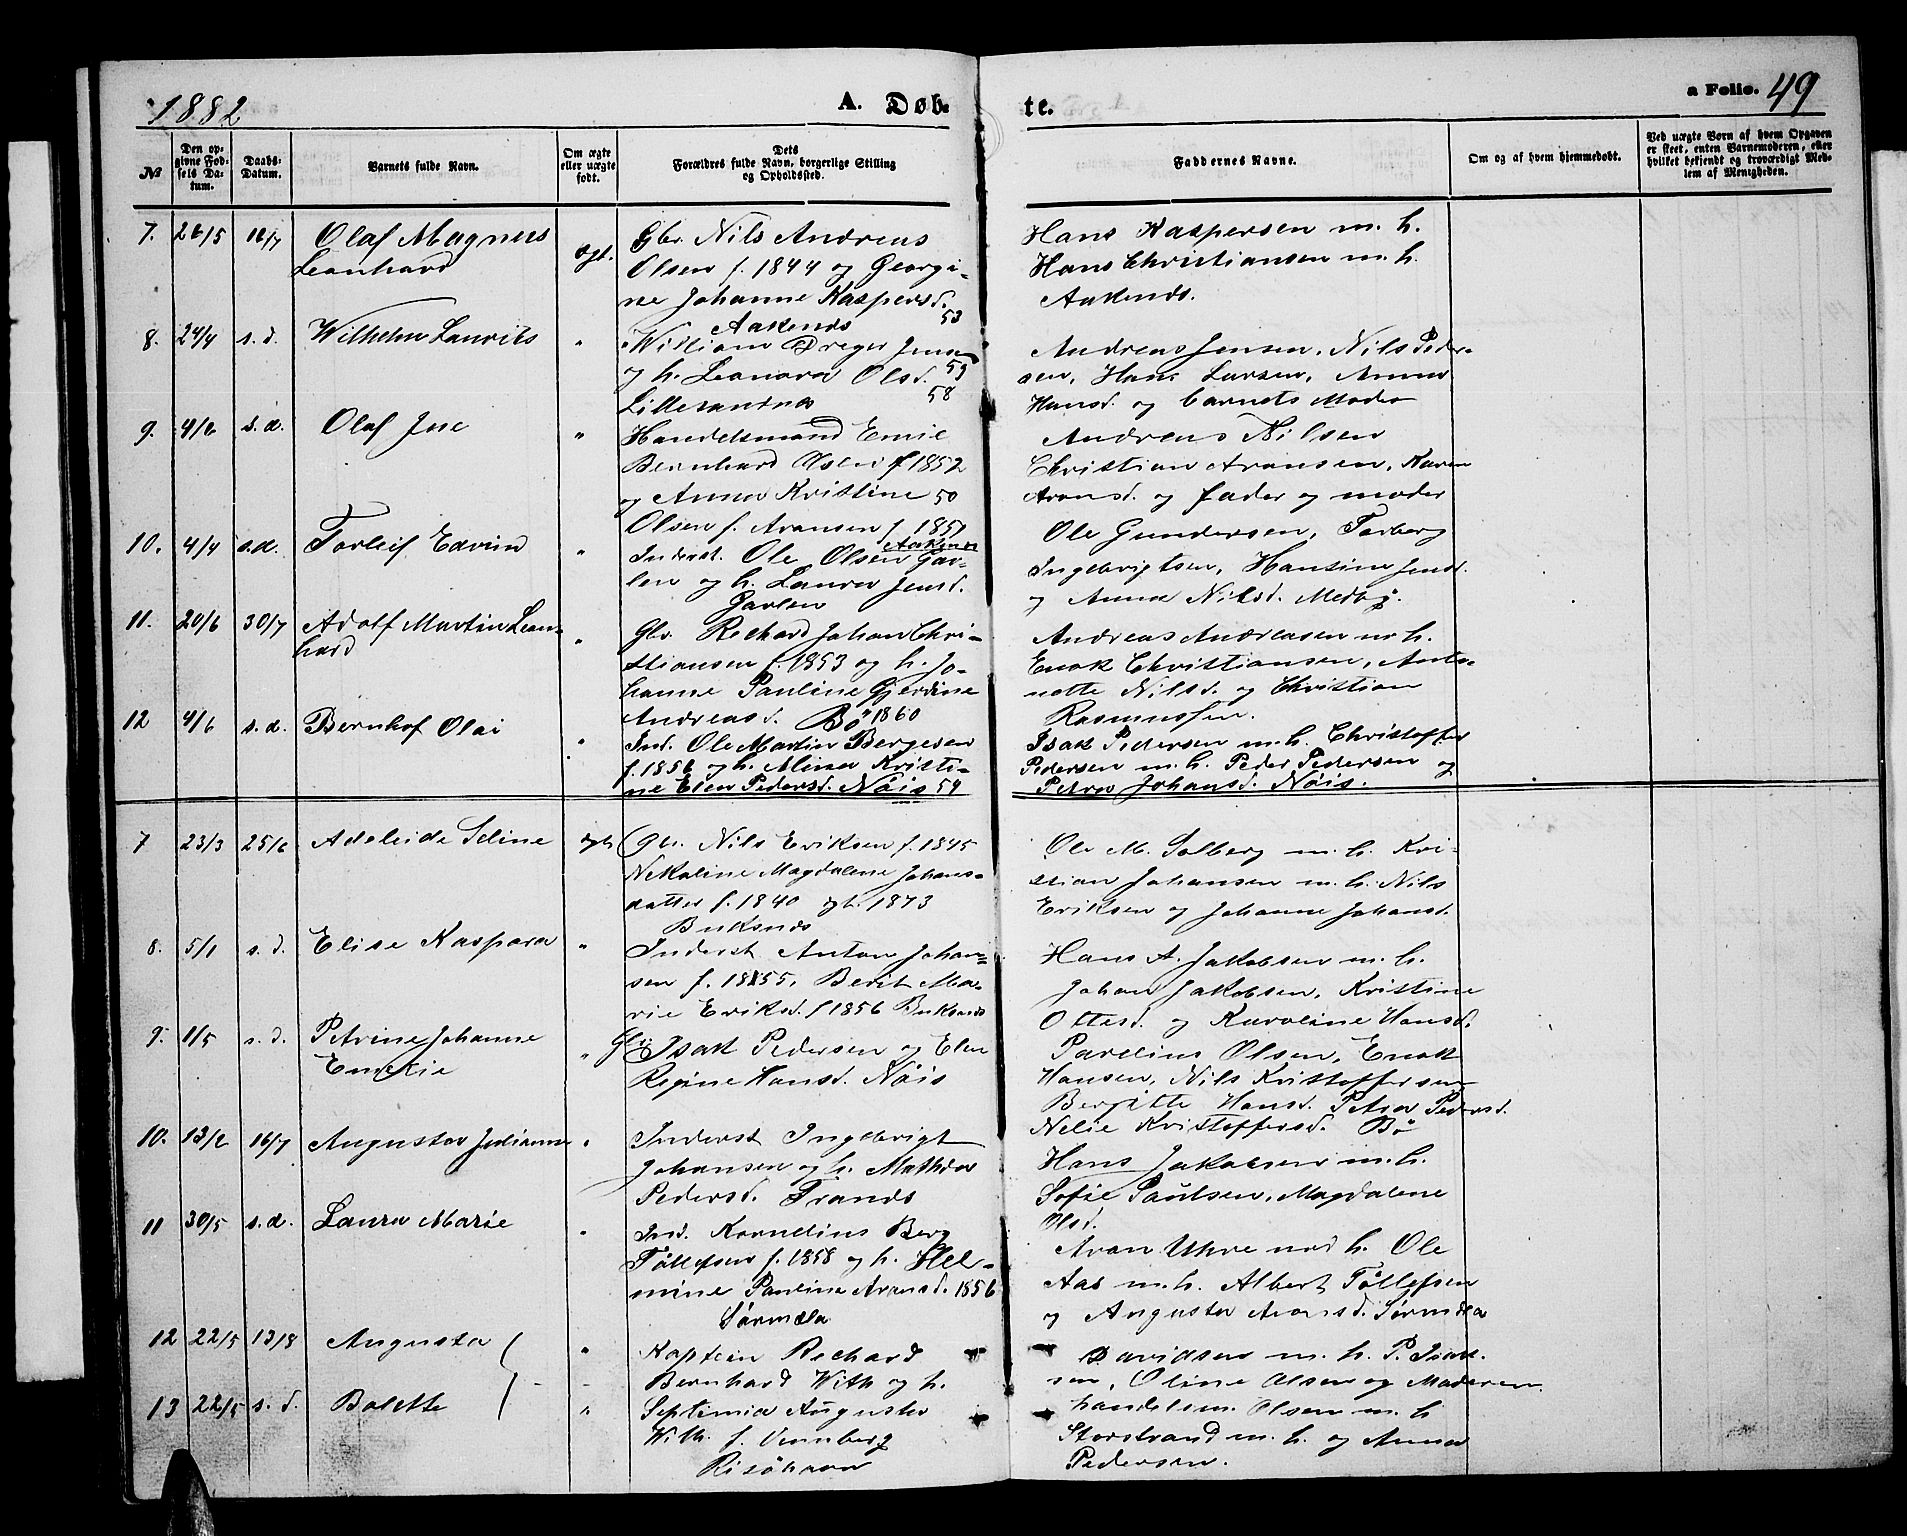 1882
A. Døb-
te.
a Folio. 49
№
Den op-
givne Fød-
sels Da-
tum.
Daabs-
Datum.
Barnets fulde Navn.
Om ægte
eller uægte
født.
Dets
Forældres fulde Navn, borgerlige Stilling
og Opholdssted.
Faddernes Navne.
Om og af hvem hjemmedøbt.
Ved uægte Børn af hvem Opgaven
er skeet, enten Barnemoderen, eller
hvilket bekjendt og troværdigt Med-
lem af Menigheden.
7. 26/5 16/7 Olaf Magnus
Leonhard
ægt.
Gbr. Nils Andreas
Olsen f. 1844 og Georgi-
ne Johanne Kaspersd.
Aakenes 53
Hans Kaspersen m. h.
Hans Christiansen m. h.
Aakenes.
8. 24/4 s. d. Wilhelm Laurits "
William Dreyer Jensen
og h. Leonora Olsd. 59
Lillesandnes 58
Andreas Jensen, Nils Peder-
sen, Hans Larsen, Anna
Hansd. og barnets Moder
9. 4/6 s. d. Olaf Jule "
Handelsmand Emil
Bernhard Olsen f 1852
og Anna Kristine 50
Olsen f. Aronsen f. 1851
Aakenes
Andreas Nilsen
Christian Aronsen, Karen
Aronsd. og fader og moder
10. 4/4 s.d. Torleif Edvin "
Inderst. Ole Olsen Gav-
len og h. Laura Jensd.
Gavlen
Ole Gundersen, Torberg
Ingebrigtsen, Hansine Jensd.
og Anna Nilsd. Medby.
11. 20/6 30/7 Adolf Martin Leon-
hard "
Gbr. Richard Johan Chri-
stiansen f. 1853 og h. Jo-
hanne Pauline Gjerdine
Andreasd. Bö 1860
Andreas Andreasen m h.
Enok Christiansen, Anto-
nette Nilsd. og Christian
Rasmussen.
12 4/6 s. d. Bernhof Olai "
Ind. Ole Martin Bergesen
f. 1856 og h. Mina Kristi-
ne Elen Pedersd. Nöis 59
Isak Pedersen m. h. Christoffer
Pedersen m. h. Peder Pedersen og
Petra Johansd. Nöis.
7 23/3 25/6 Adeleide Seline ægte
Gbr. Nils Eriksen f. 1845
Nekoline Magdalene Johans-
datter f. 1840 gt. 1873
Buksnes
Ole M. Solberg m. h. Kri-
stian Johansen m. h. Nils
Eriksen og Johanne Johansd.
8. 5/1 s. d. Elise Kaspara "
Inderst Anton Johan-
sen f. 1855, Berit Ma-
rie Eriksd. f 1856 Buksnes
Hans A. Jakobsen m. h.
Johan Jakobsen, Kristine
Ottesd. og Karoline Hansd.
9. 1/5 s. d. Petrine Johanne
Emelie "
Gbr. Isak Pedersen og Elen
Regine Hansd. Nöis
Parelius Olsen, Enok
Hansen, Nils Kristoffersen
Bergitte Hansd. Petra Pedersd.
Nelie Kristoffersd. Bö
10. 13/2 16/7 Augusta Julianne "
Inderst Ingebrigt
Johansen og h. Mathea
Pedersd. Trands
Hans Jakobsen m. h.
Sofie Paulsen, Magdalene
Olsd.
11 30/5 s.d. Laura Marie "
Ind. Kornelius Berg
Töllefsen f. 1858 og h. Hel-
mine Pauline Aronsd. 1856
Sørmæla
Aron Uhre med h. Ole
Aas m. h. Albert Töllefsen
og Augusta Aronsd. Sørmæla
12 22/5 13/8 Augusta "
13 22/5 s. d. Bolette "
Kaptein Richard
Bernhard With og h.
Septimia Augusta
With f. Vennberg
Risöhavn
Davidsen m. h. P. Isak-
sen, Oline Olsen og Moderen
handelsm. Olsen m. h
Storstrand m. h. og Anna
Pedersen.